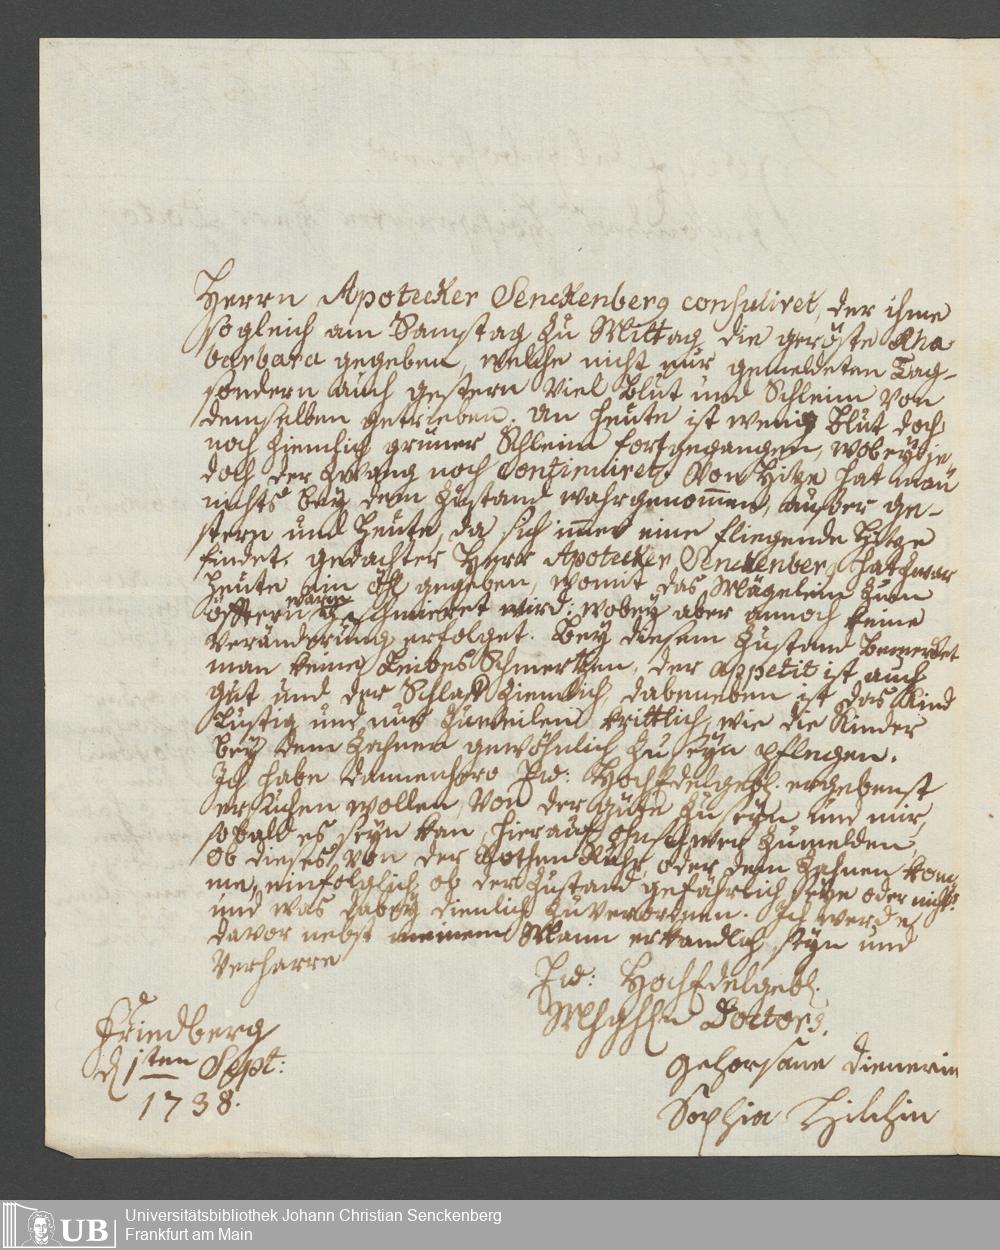 Herrn Apotecker Senckenberg consuliret, der ihme
sogleich am Samstag zu Mittag die geröste Rha
barbara gegeben, welche nicht nur gemeldeten Tag-
sondern auch gestern viel Blut und Schleim von
demselben getrieben. an heute ist wenig Blut doch
noch ziemlich grüner Schleim fortgegangen, wobey je
doch der Zwang noch Continuiret. Von Hitze hat man
nichts bey dem Zustand wahrgenommen, ausser ge-
stern und heute, da sich immer eine fliegende Hitze
findet. gedachter Herr Apotecker Senckenberg hat zwar
heute ein Öhl gegeben, womit das Mägelein zum
öfftern warm geschmieret wird; wobey aber annoch keine
Veränderung erfolget. Bey diesem Zustand bemerket
man keine Leibes Schmertzen, der appetit ist auch
gut und der Schlaff ziemlich, dabeneben ist das Kind
lustig und nur zuweilen krittlich, wie die Kinder
bey dem Zahnen gewöhnlich zu seyn pflegen.
Ich habe dannenhero Ew: HochEdelgeb. ergebenst
ersuchen wollen, von der Güte zu seyn und mir,
sobald es seyn kan, hierauf ohnschwer zumelden,
ob dieses von der Rothen Ruhr, oder dem Zahnen kom
me, einfolglich ob der Zustand gefährlich seye oder nicht?
und was dabey dienlich zuverordnen. Ich werde
davor nebst meinem Mann erkandlich seyn und
Verharre
Ew: HochEdelgeb.
Doctors.
Friedberg
d 1ten Sept:
1738.
gehorsame Dienerin
Sophia Hilchin
UB
Universitätsbibliothek Johann Christian Senckenberg
Frankfurt am Main